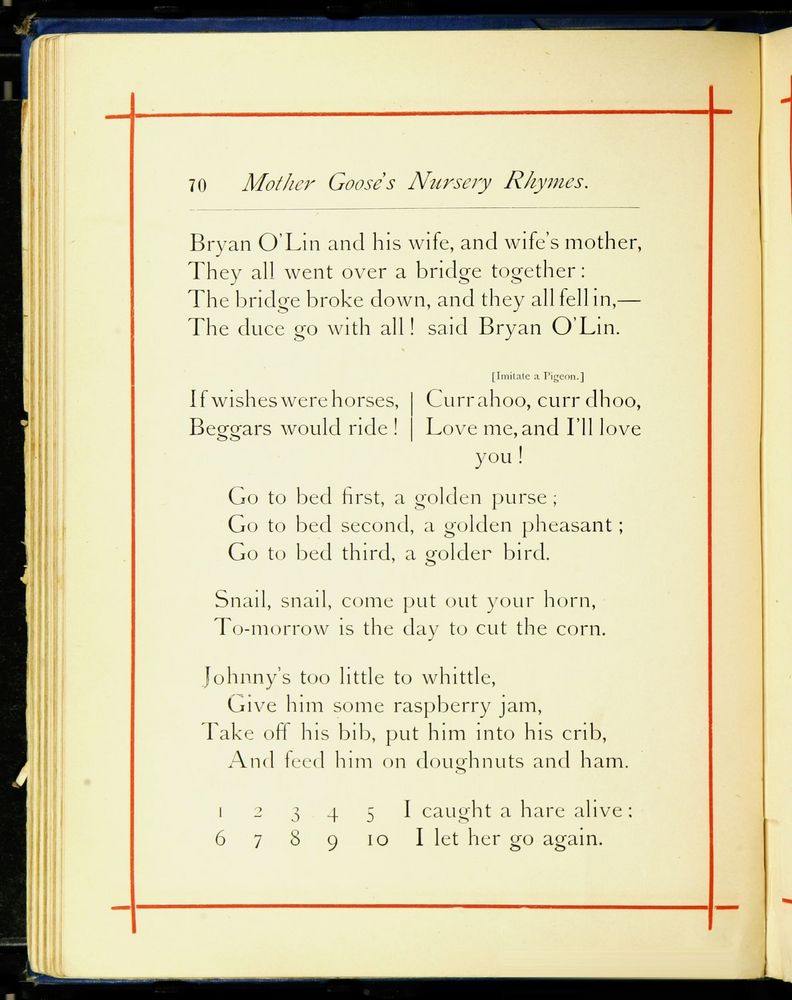 70 Mother Goose's Nursery Rhymes.
Bryan O'Lin and his wife, and wife's mother,
They all went over a bridge together:
The bridge broke down, and they all fell in,—
The duce go with all! said Bryan O'Lin.
If wishes were horses,
Beggars would ride!
[Imitate a Pigeon.]
Currahoo, curr dhoo,
Love me, and I'll love
you!
Go to bed first, a golden purse;
Go to bed second, a golden pheasant;
Go to bed third, a golder bird.
Snail, snail, come put out your horn,
To-morrow is the day to cut the corn.
Johnny's too little to whittle,
Give him some raspberry jam,
Take off his bib, put him into his crib,
And feed him on doughnuts and ham.
1 2 3 4 5 I caught a hare alive:
6 7 8 9 10 I let her go again.